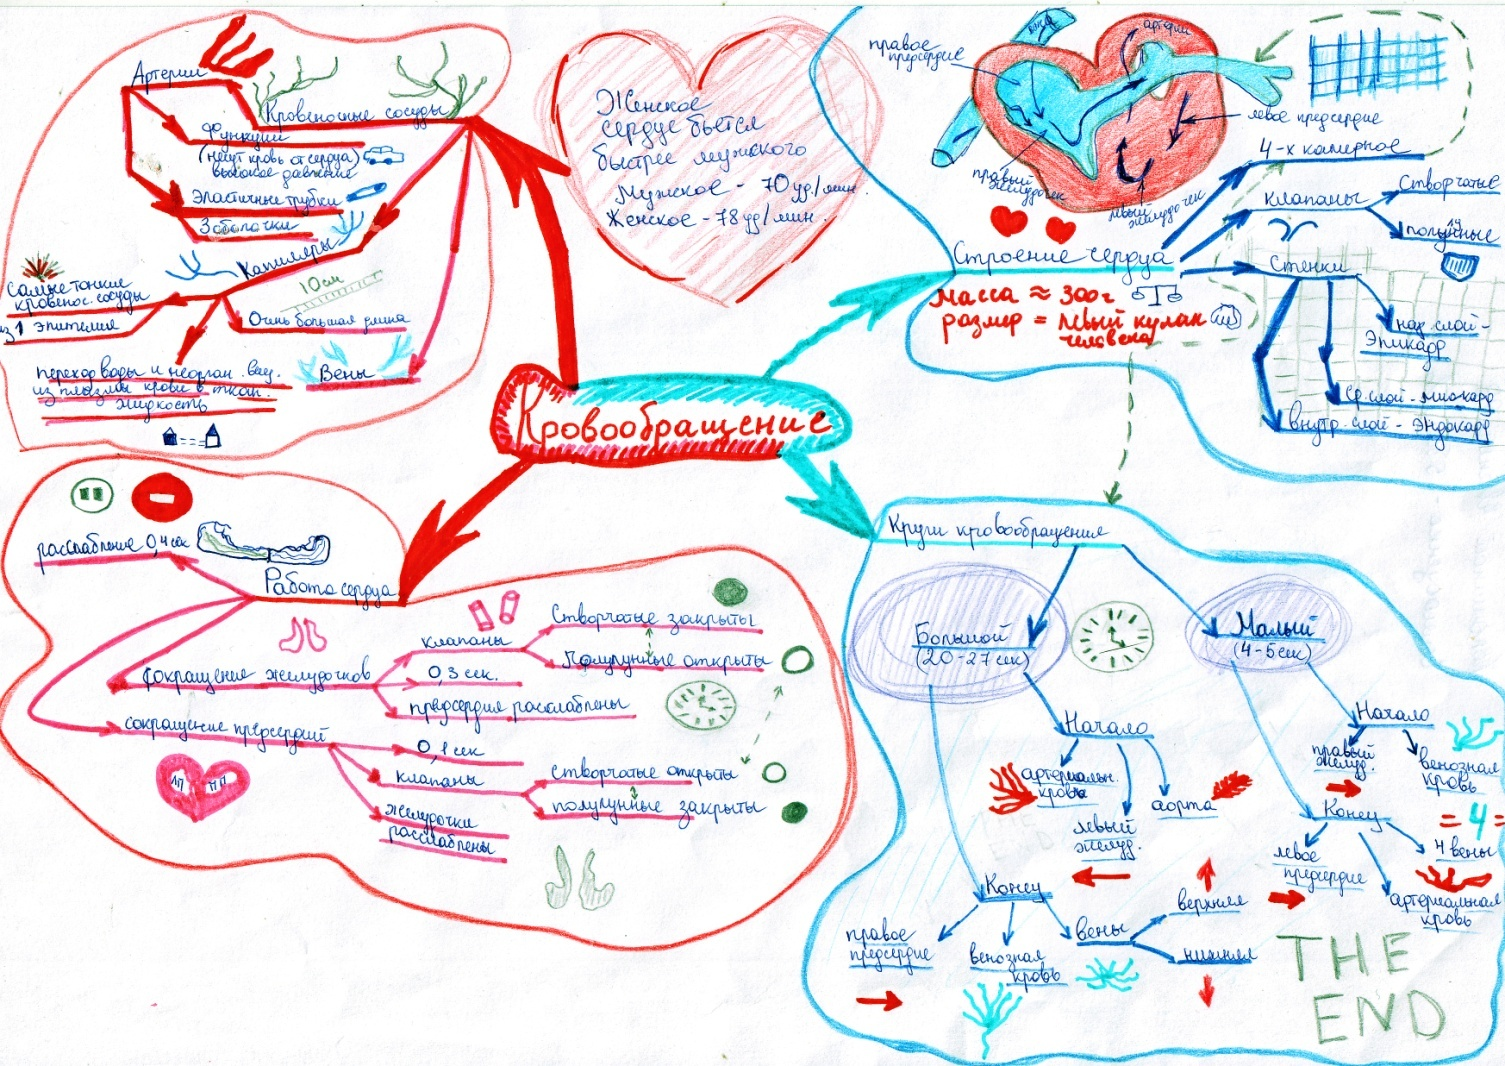 Кровообращение
Кровеносные сосуды
Артерии
Функции
(несут кровь от сердца)
высокое давление
Эластичные трубки
3 оболочки
Капилляры
10 см
Самые тонкие
кровенос. сосуды
из 1 эпителия
Очень большая длина
переход воды и неорган. вещ.
из плазмы крови в ткан.
жидкость
Вены
Женское
сердце бьется
быстрее мужского
Мужское - 70 уд/мин.
Женское - 78 уд/мин.
Строение сердца
Масса ≈ 300г
размер = левый кулак
человека
правое
предсердие
артерии
левое предсердие
правый
желудочек
левый
желудочек
4-х камерное
клапаны
Створчатые
полулунные
Стенки
нар. слой -
Эпикард
Ср. слой - миокард
Внутр. слой - эндокард
Работа сердца
расслабление 0,4 сек
Сокращение желудочков
клапаны
Створчатые закрыты
Полулунные открыты
0,3 сек.
предсердия расслаблены
сокращение предсердий
0,1 сек
клапаны
створчатые открыты
полулунные закрыты
желудочки
расслаблены
ЛП
ПП
Круги кровообращения
Большой
(20-27 сек)
Начало
артериальн.
кровь
левый
желуд.
аорта
Конец
правое
предсердие
венозная
кровь
вены
верхняя
нижняя
Малый
(4-5 сек)
Начало
правый
желуд.
венозная
кровь
Конец
левое
предсердие
= 4 =
4 вены
артериальная
кровь
THE
END